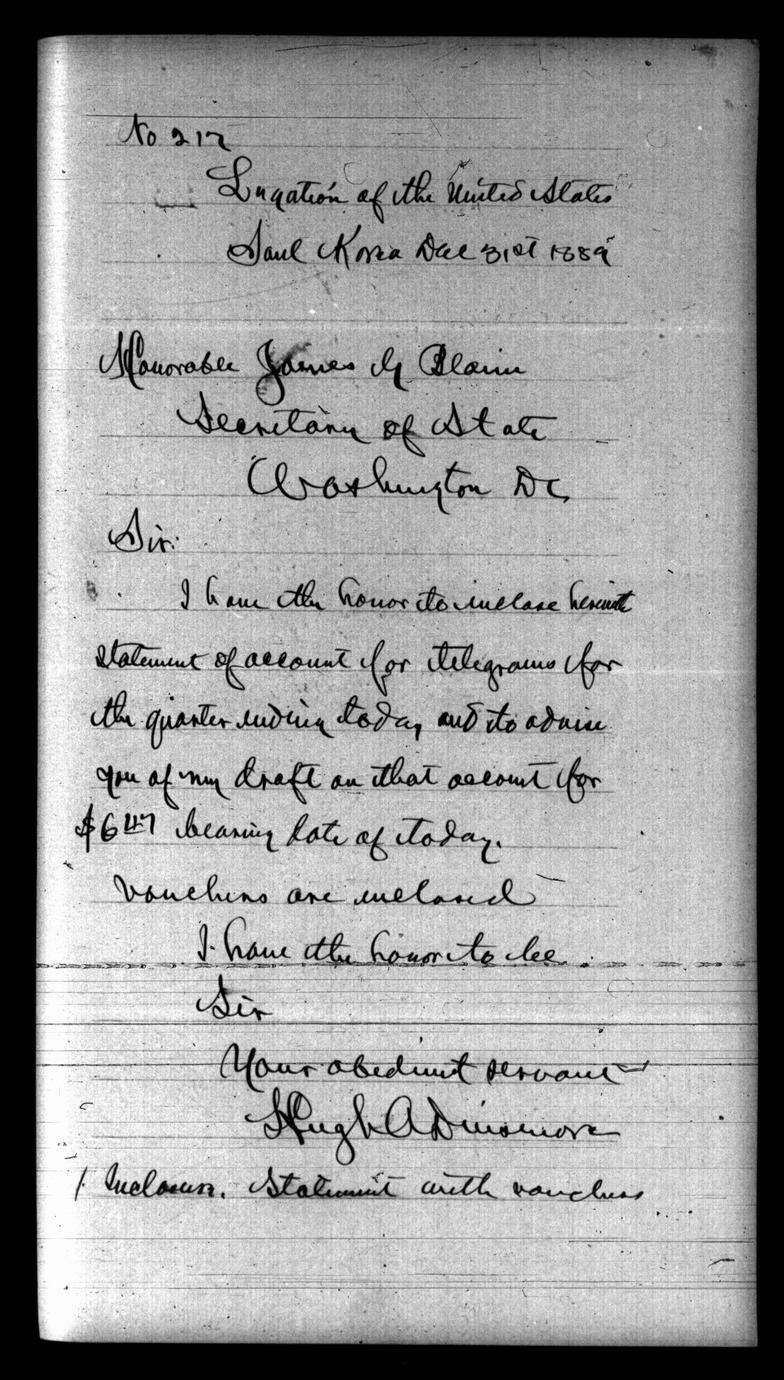 No 217
Legation of the United States
Seoul Korea Dec 31st 1889
Honorable James G Blaine
Secretary of State
Washington DC
Sir:
I have the honor to inclose herewith
statement of account for telegrams for
the quarter ending today and to advise
you of my draft on that account for
$6 47 bearing date of today.
Vouchers are inclosed
I have the honor to be
Sir
Your obedient servant
Hugh A Dinsmore
1 Inclosure. Statement with vouchers